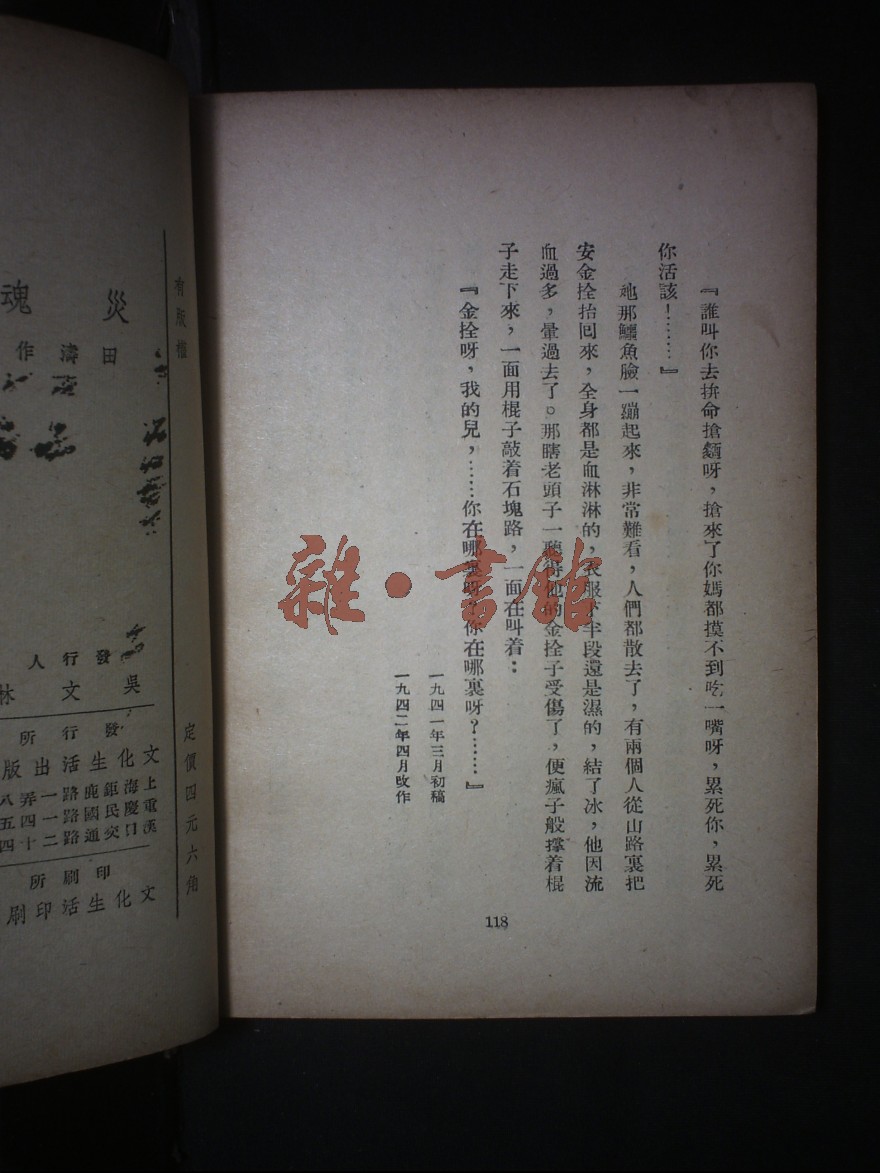 『誰叫你去拚命搶麵呀，搶來了你媽都摸不到吃一嘴呀，累死你，累死
你活該！……』
她那鱷魚臉一蹦起來，非常難看，人們都散去了，有兩個人從山路裏把
安金拴抬回來，全身都是血淋淋的，衣服下半段還是濕的，結了冰，他因流
血過多，暈過去了。那瞎老頭子一聽得他的金拴子受傷了，便瘋子般撑着棍
子走下來，一面用棍子敲着石塊路，一面在叫着：
『金拴呀，我的兒，……你在哪裏呀？你在哪裏呀？……』
一九四一年三月初稿
一九四二年四月改作
118
雜·書館
有版權
定價四元六角
災魂
田濤作
發行人
吳文林
發行所
文化生活出版
上海鉅鹿路一弄八
重慶民國路一四五
漢口交通路二十四
印刷所
文化生活印刷